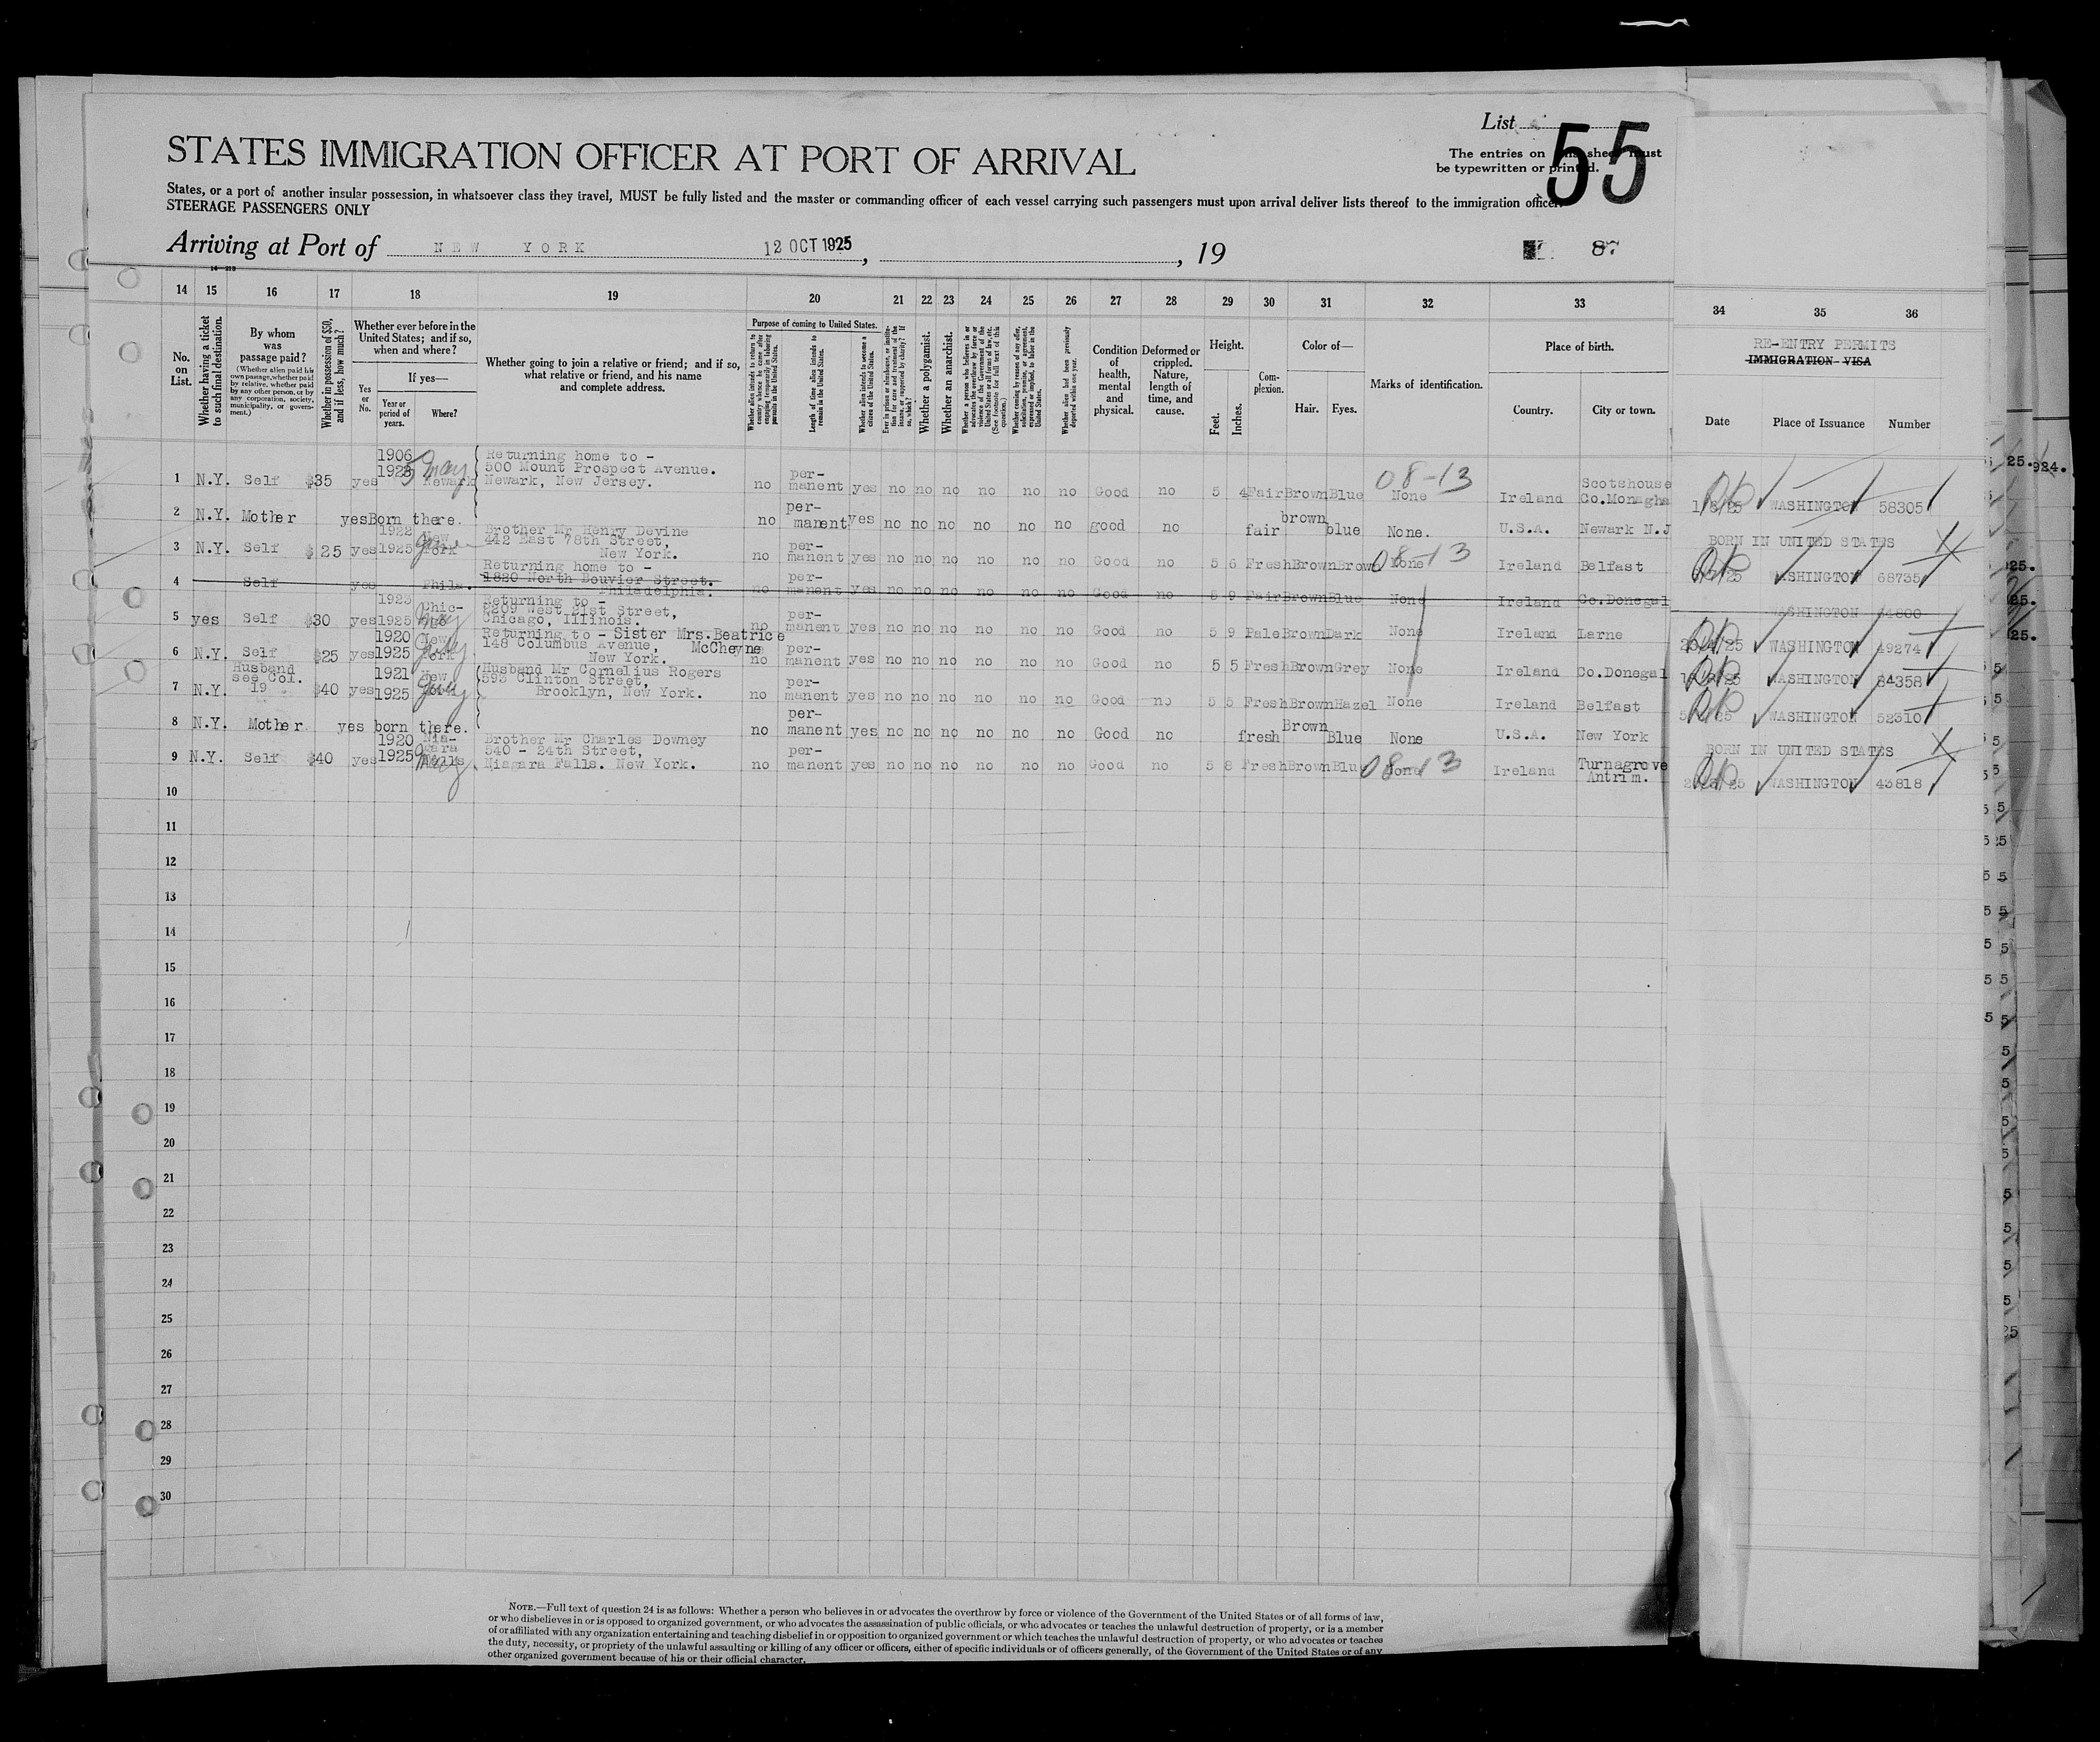 List
55
The entries on this sheet must
be typewritten or printed.
STATES IMMIGRATION OFFICER AT PORT OF ARRIVAL
States, or a port of another insular possession, in whatsoever class they travel, MUST be fully listed and the master or commanding officer of each vessel carrying such passengers must upon arrival deliver lists thereof to the immigration officer.
STEERAGE PASSENGERS ONLY
Arriving at Port of NEW YORK 12 OCT 1925, , 19 87
14 15 16 17 18 19 20 21 22 23 24 25 26 27 28 29 30 31 32 33 34 35 36
No. on List.
Whether having a ticket to such final destination.
By whom was passage paid?
(Whether alien paid his own passage, whether paid by relative, whether paid by any other person, or by any corporation, society, municipality, or government.)
Whether in possession of $50, and if less, how much?
Whether ever before in the United States; and if so, when and where?
Yes or No.
If yes—
Year or period of years.
Where?
Whether going to join a relative or friend; and if so, what relative or friend, and his name and complete address.
Purpose of coming to United States.
Whether alien intends to return to country whence he came after engaging temporarily in laboring pursuits in the United States.
Length of time alien intends to remain in the United States.
Whether alien intends to become a citizen of the United States.
Whether a polygamist.
Whether an anarchist.
Whether alien had been previously deported within one year.
Condition of health, mental and physical.
Deformed or crippled. Nature, length of time, and cause.
Height.
Feet. Inches.
Complexion.
Color of—
Hair. Eyes.
Marks of identification.
Place of birth.
Country. City or town.
RE-ENTRY PERMITS
IMMIGRATION VISA
Date Place of Issuance Number
1 N.Y. Self $35 yes 1906 1923 May Newark Returning home to - 500 Mount Prospect Avenue. Newark, New Jersey. no permanent yes no no no no no no Good no 5 4 Fair Brown Blue None 08-13 Ireland Scotshouse Co.Monagha WASHINGTON 58305
2 N.Y. Mother yes Born there. no permanent yes no no no no no no good no fair brown blue None. U.S.A. Newark N.J BORN IN UNITED STATES
3 N.Y. Self $25 yes 1922 1925 New York Brother Mr Henry Devine 442 East 78th Street, New York. no permanent yes no no no no no no Good no 5 6 Fresh Brown Brown None 08-13 Ireland Belfast WASHINGTON 68735
4 Self yes Phila. Returning home to - 1820 North Bouvier Street. Philadelphia. no permanent yes no no no no no no Good no 5 9 Fair Brown Blue None Ireland Co.Donegal WASHINGTON
5 yes Self $30 yes 1923 1925 Chicago Returning to - West 21st Street, Chicago, Illinois. no permanent yes no no no no no no Good no 5 9 Pale Brown Dark None Ireland Larne WASHINGTON 49274
6 N.Y. Self $25 yes 1920 1925 New York Returning to - Sister Mrs.Beatrice McCheyne 148 Columbus Avenue, New York. no permanent yes no no no no no no Good no 5 5 Fresh Brown Grey None Ireland Co.Donegal WASHINGTON 84358
7 N.Y. Husband see Col. 19 $40 yes 1921 1925 New York Husband Mr Cornelius Rogers 593 Clinton Street, Brooklyn, New York. no permanent yes no no no no no no Good no 5 5 Fresh Brown Hazel None Ireland Belfast WASHINGTON 52310
8 N.Y. Mother yes born there. no permanent yes no no no no no no Good no fresh Brown Blue None U.S.A. New York BORN IN UNITED STATES
9 N.Y. Self $40 yes 1920 1925 Niagara Falls Brother Mr Charles Downey 540 - 24th Street, Niagara Falls. New York. no permanent yes no no no no no no Good no 5 8 Fresh Brown Blue None 08-13 Ireland Turnagrove Antrim. WASHINGTON 43818
10
11
12
13
14
15
16
17
18
19
20
21
22
23
24
25
26
27
28
29
30
NOTE.—Full text of question 24 is as follows: Whether a person who believes in or advocates the overthrow by force or violence of the Government of the United States or of all forms of law,
or who disbelieves in or is opposed to organized government, or who advocates the assassination of public officials, or who advocates or teaches the unlawful destruction of property, or is a member
of or affiliated with any organization entertaining and teaching disbelief in or opposition to organized government or which teaches the unlawful destruction of property, or who advocates or teaches
the duty, necessity, or propriety of the unlawful assaulting or killing of any officer or officers, either of specific individuals or of officers generally, of the Government of the United States or of any
other organized government because of his or their official character.